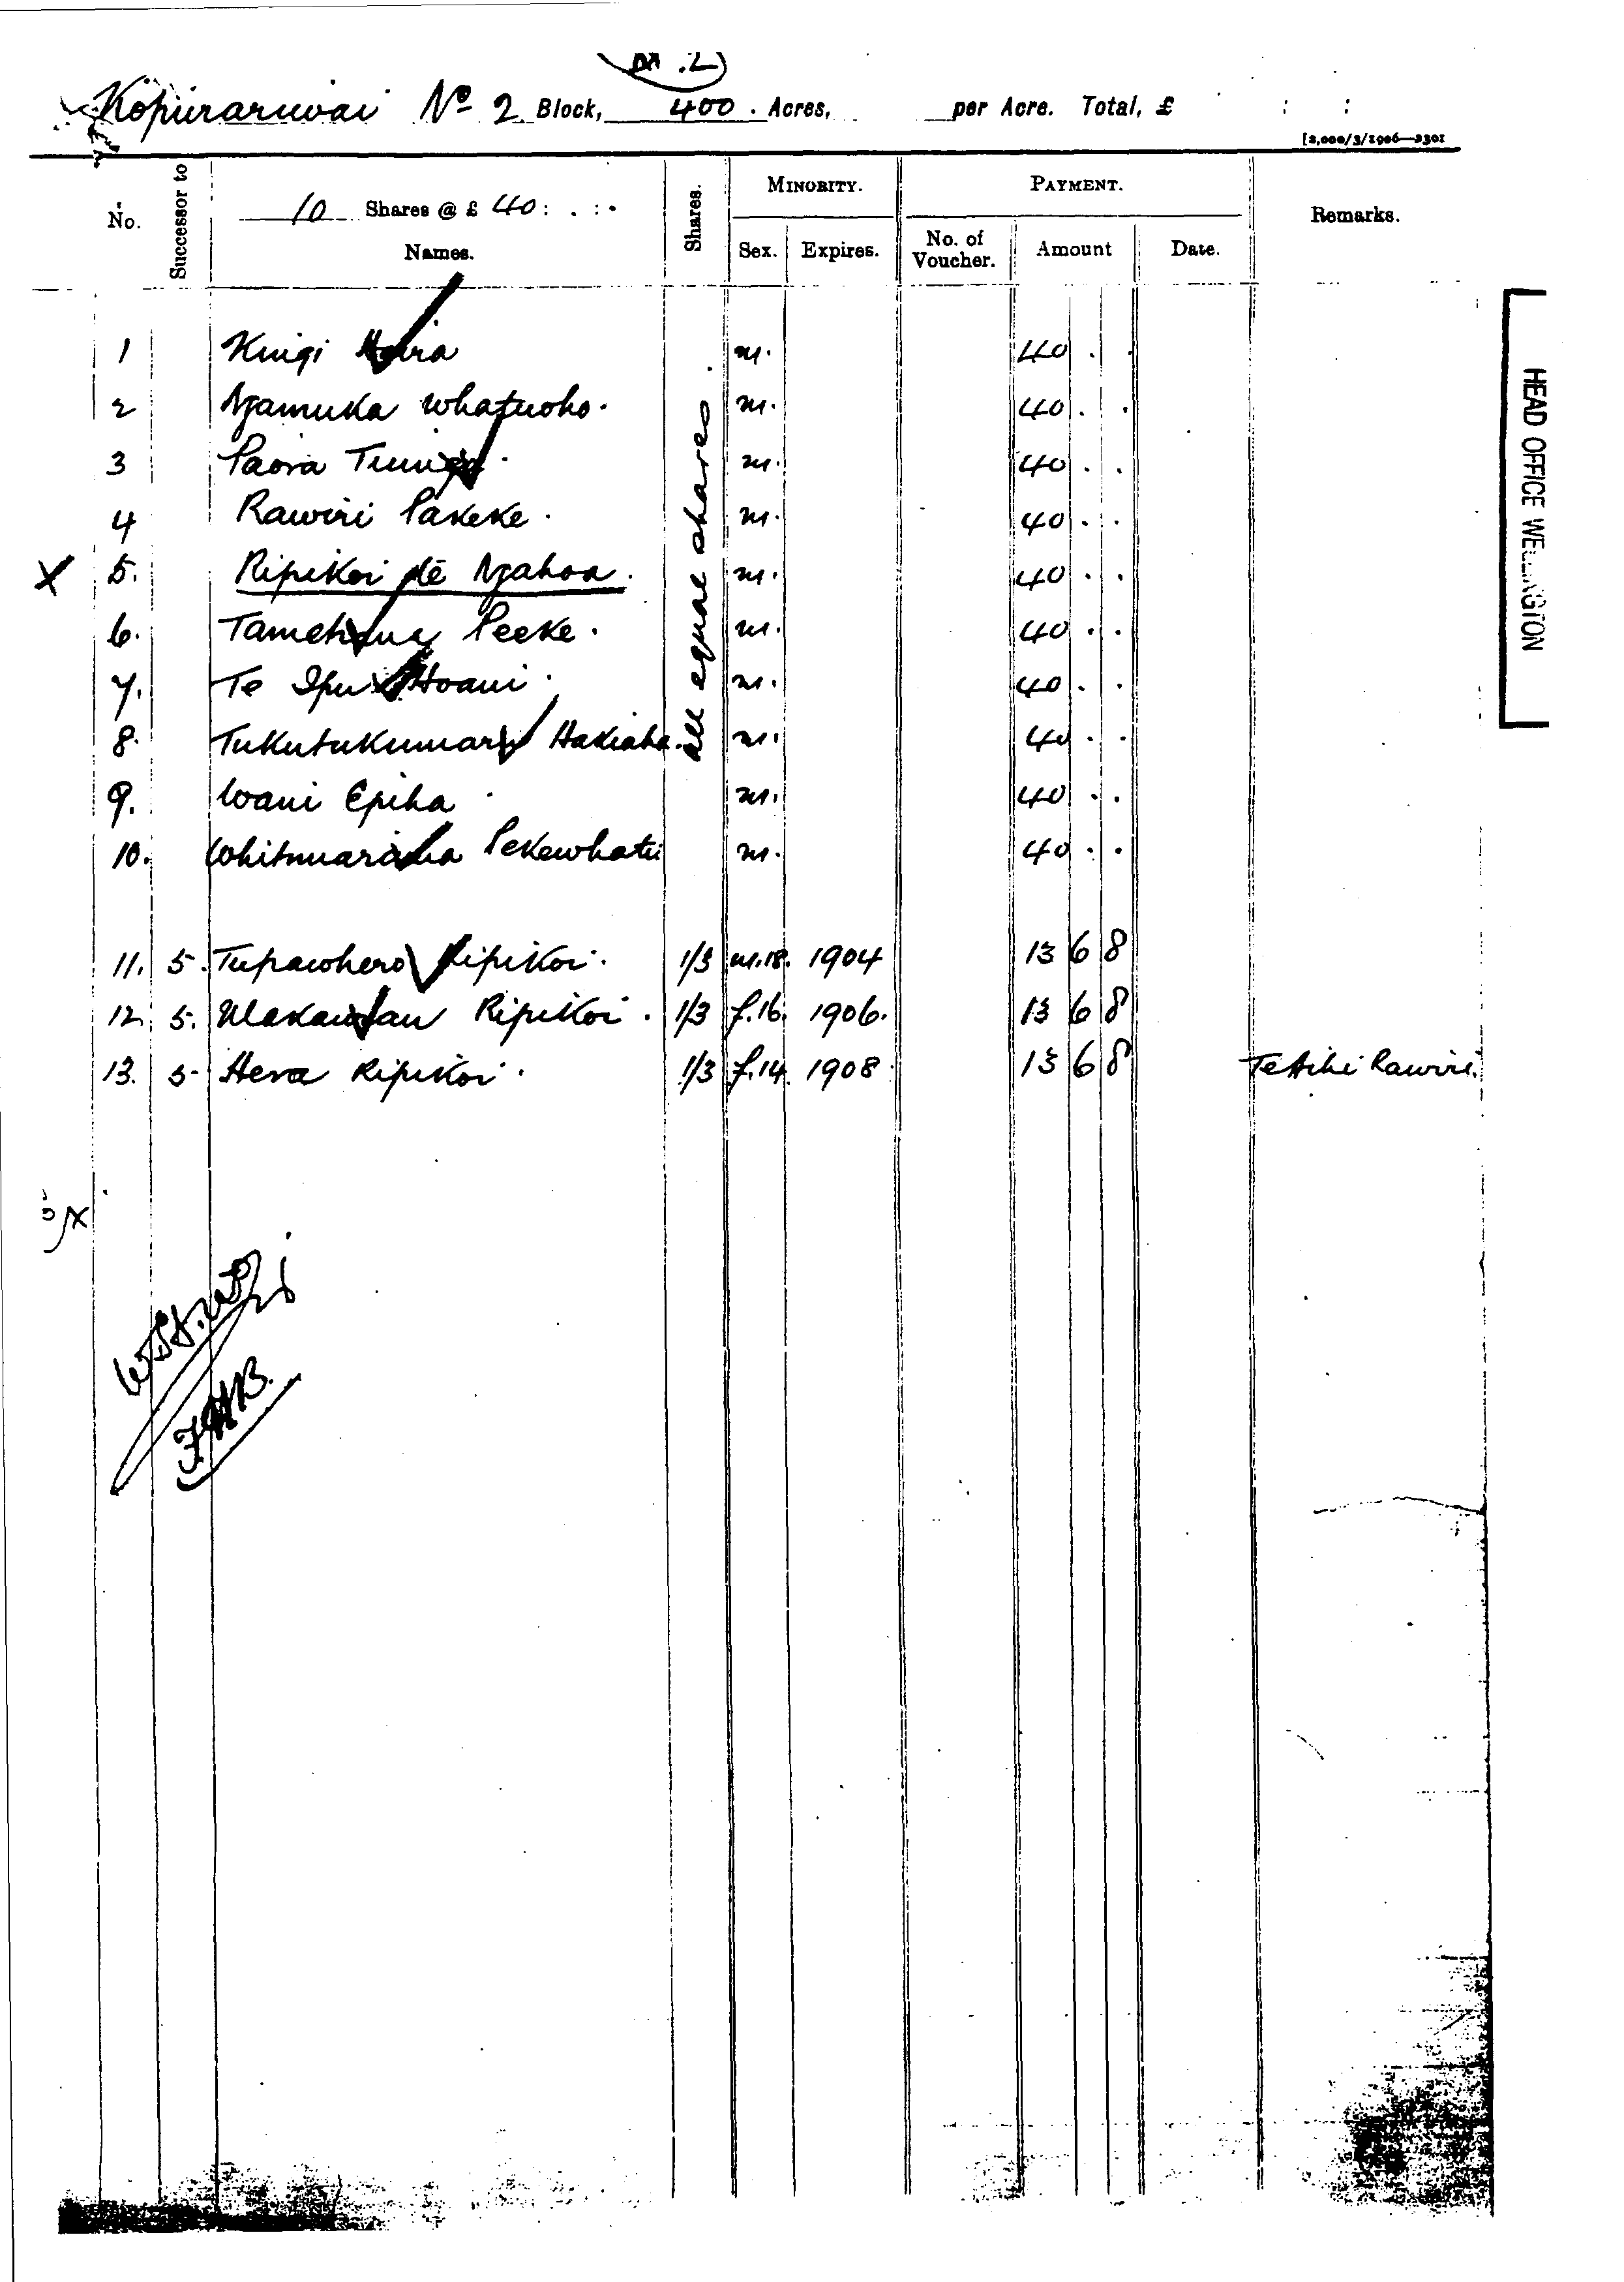 Kopuraruwai No 2 Block, 400 . Acres, per Acre. Total, £ : :
[2,000/3/1906—3301
No. Successor to 10 Shares @ £ 40 : . : . Names. Shares. MINORITY. Sex. Expires. PAYMENT. No. of Voucher. Amount Date. Remarks.
all equal shares.
1 Kingi m. 40 . .
2 Ngamuka Whatuoho. m. 40 . .
3 Paora m. 40 . .
4 Rawiri Pakeke. m. 40 . .
X 5. Ripikoi te Ngahoa. m. 40 . .
6. Peeke. m. 40 . .
7. Te Ipu Hoani. m. 40 . .
8. Tukutukumaru Hakiaha. m. 40 . .
9. Wani Epiha m. 40 . .
10. Pekewhatu m. 40 . .
11. 5. Tupawhero Ripikoi. 1/3 m.18. 1904 13 6 8
12. 5. Ripikoi. 1/3 f.16. 1906. 13 6 8
13. 5 Hera Ripikoi. 1/3 f.14. 1908 13 6 8 Te Aihi Rawiri.
HEAD OFFICE WELLINGTON